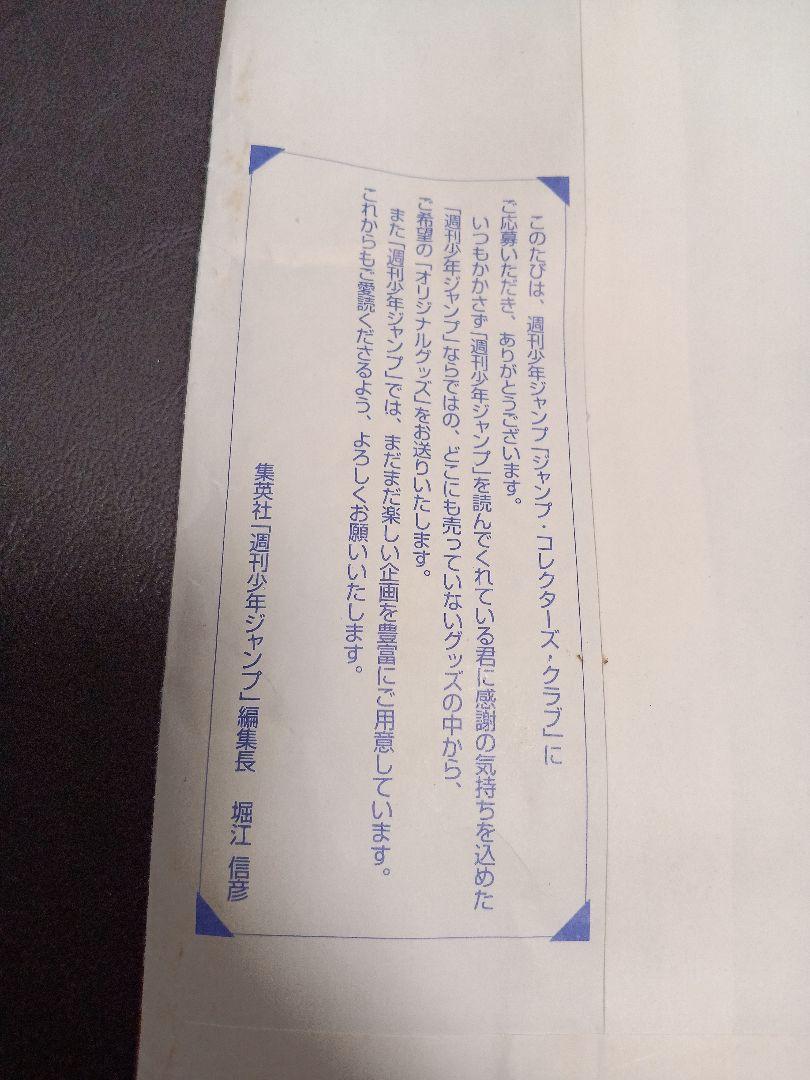 このたびは、週刊少年ジャンプ「ジャンプ・コレクターズ・クラブ」に
ご応募いただき、ありがとうございます。
いつもかかさず「週刊少年ジャンプ」を読んでくれている君に感謝の気持ちを込めた
「週刊少年ジャンプ」ならではの、どこにも売っていないグッズの中から、
ご希望の「オリジナルグッズ」をお送りいたします。
また「週刊少年ジャンプ」では、まだまだ楽しい企画を豊富にご用意しています。
これからもご愛読くださるよう、よろしくお願いいたします。
集英社「週刊少年ジャンプ」編集長　堀江 信彦